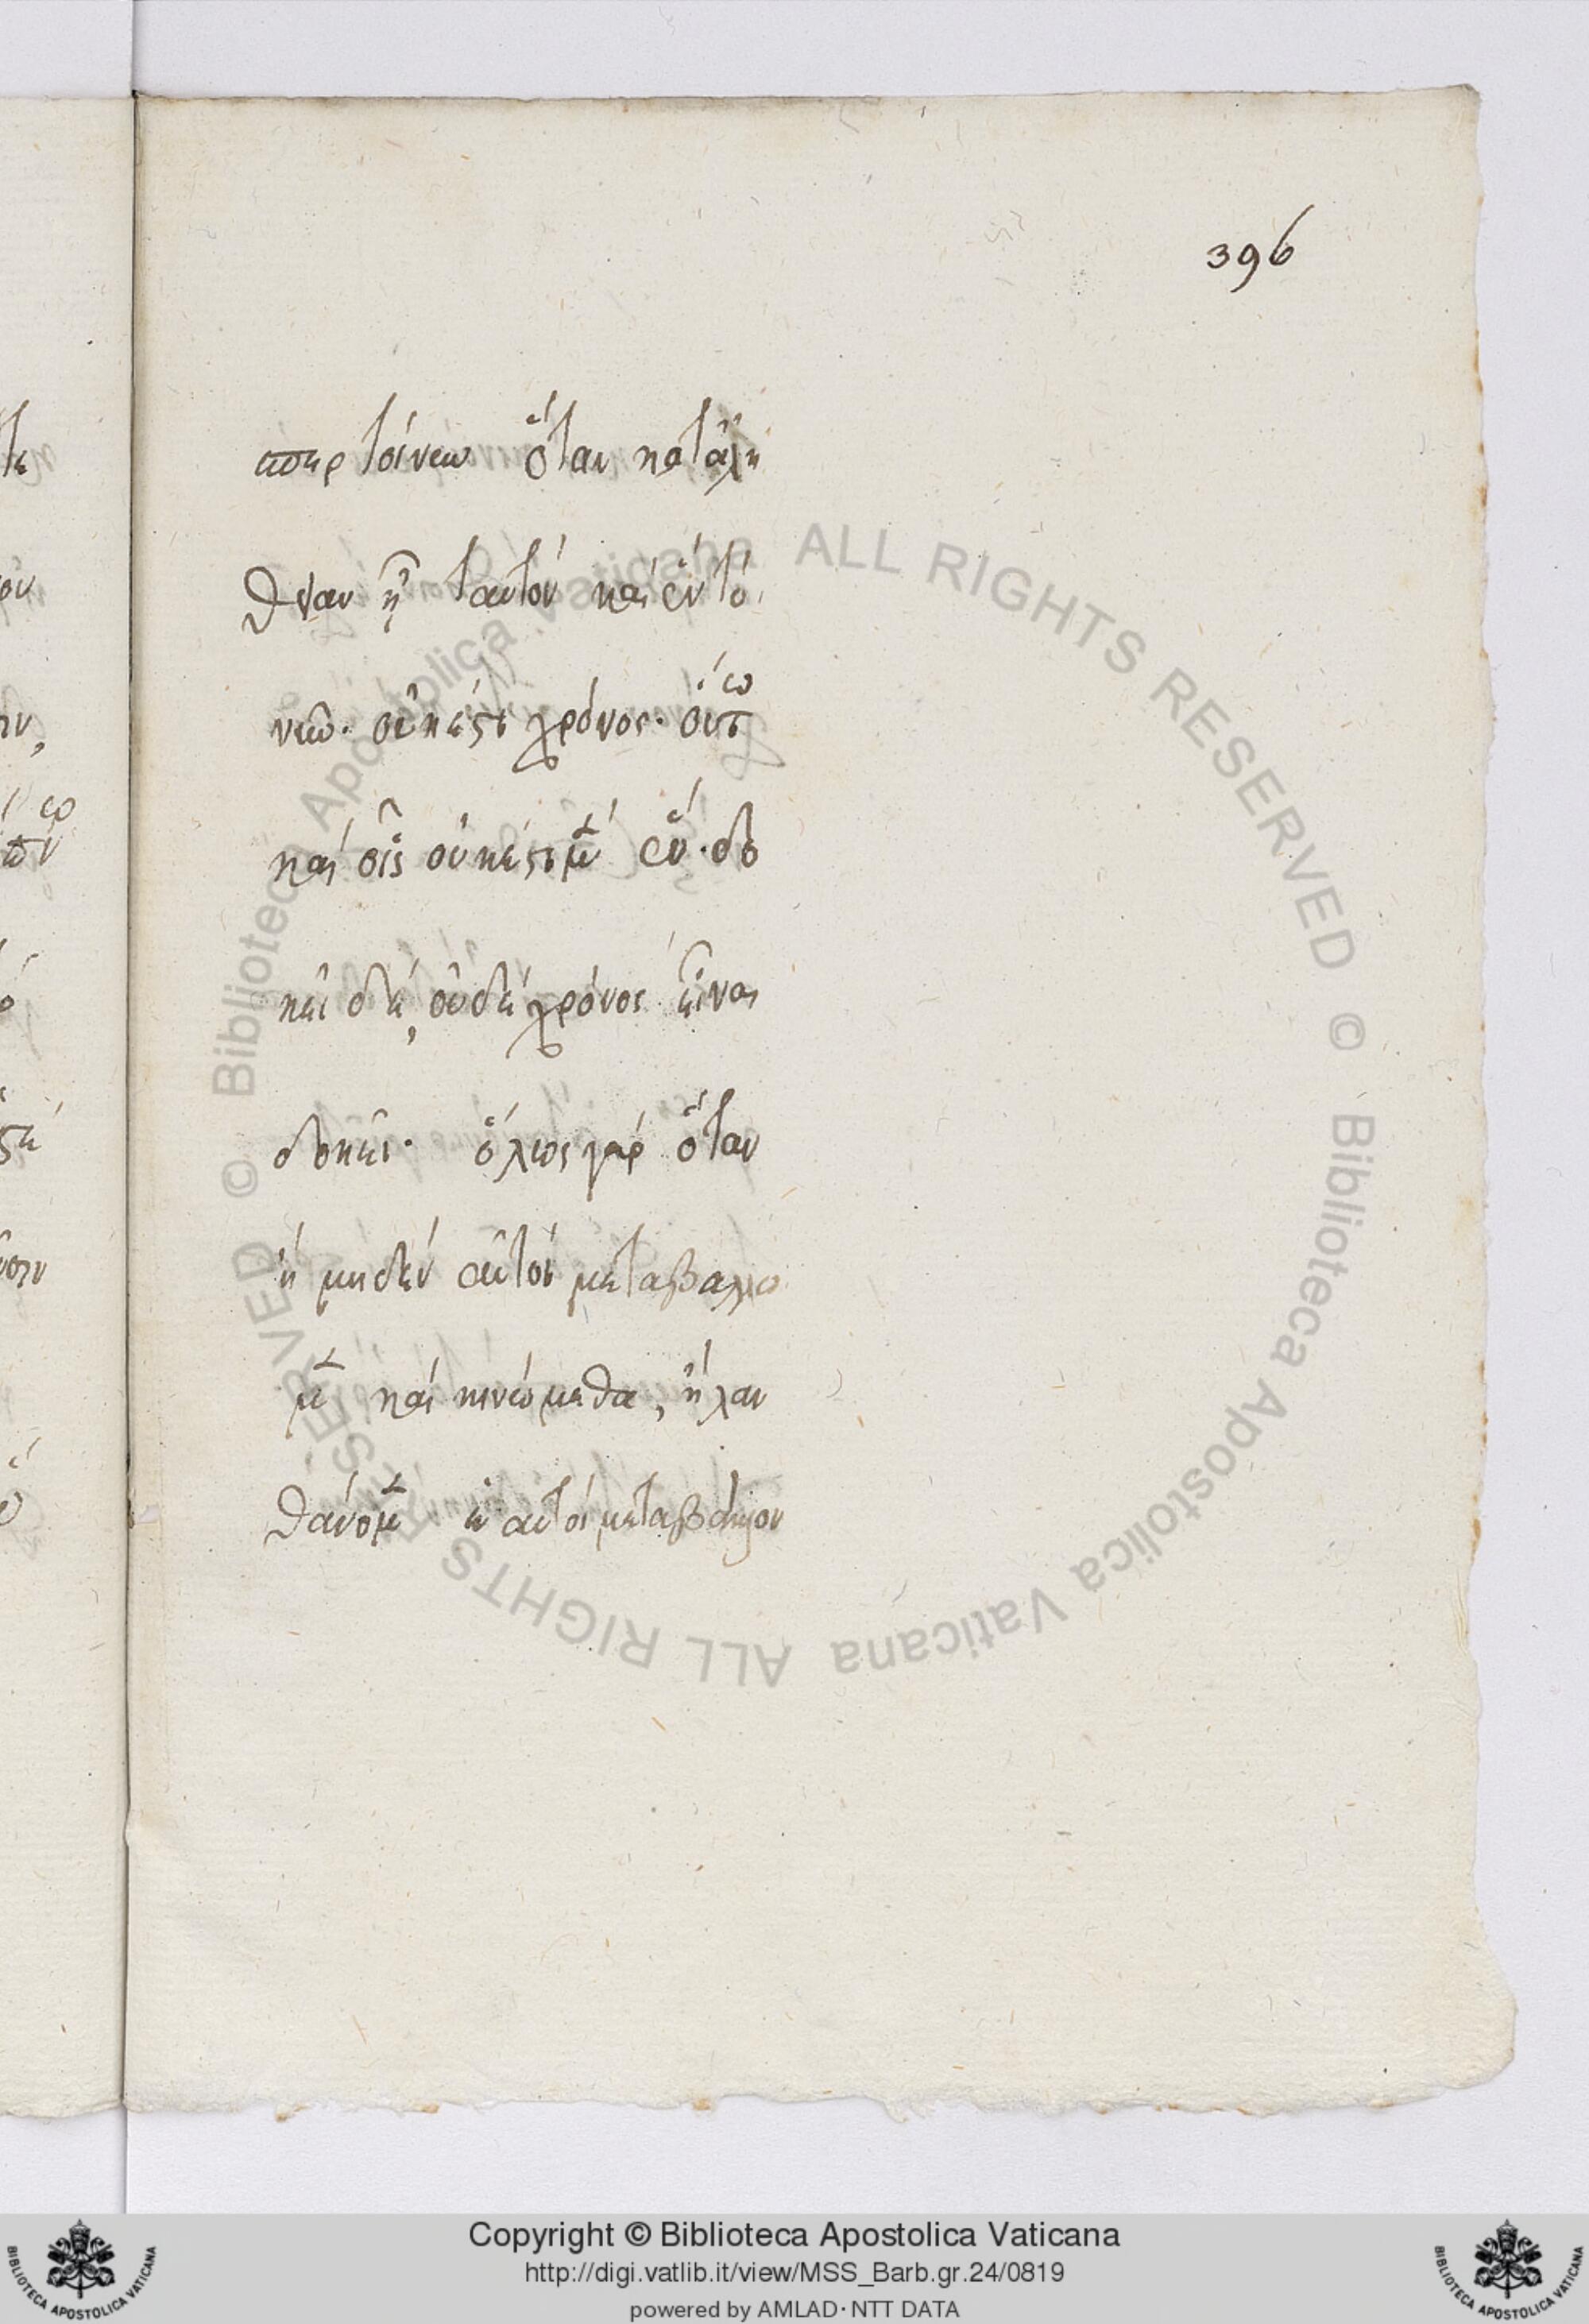 396
ωσπερ τοίνυν ὅταν καταλη
θῆναν ᾖ ταυτόν καὶ ἓν τὸ
νῦν. οὐκ ἔστι χρόνος. οὕτω
καὶ οἷς οὐκ ἔστι μὲν ἓν. δο
κεῖ δὲ, οὐδὲ χρόνος εἶναι
δοκεῖ. ὅλως γὰρ ὅταν
ἢ μηδὲν αὐτοὶ μεταβαλλο
μεν καὶ κινώμεθα, ἢ λαν
θάνομεν εἰ αὐτοὶ μεταβάλλον
Copyright © Biblioteca Apostolica Vaticana
http://digi.vatlib.it/view/MSS_Barb.gr.24/0819
powered by AMLAD·NTT DATA
© Biblioteca Apostolica Vaticana ALL RIGHTS RESERVED © Biblioteca Apostolica Vaticana ALL RIGHTS RESERVED
BIBLIOTECA APOSTOLICA VATICANA
BIBLIOTECA APOSTOLICA VATICANA